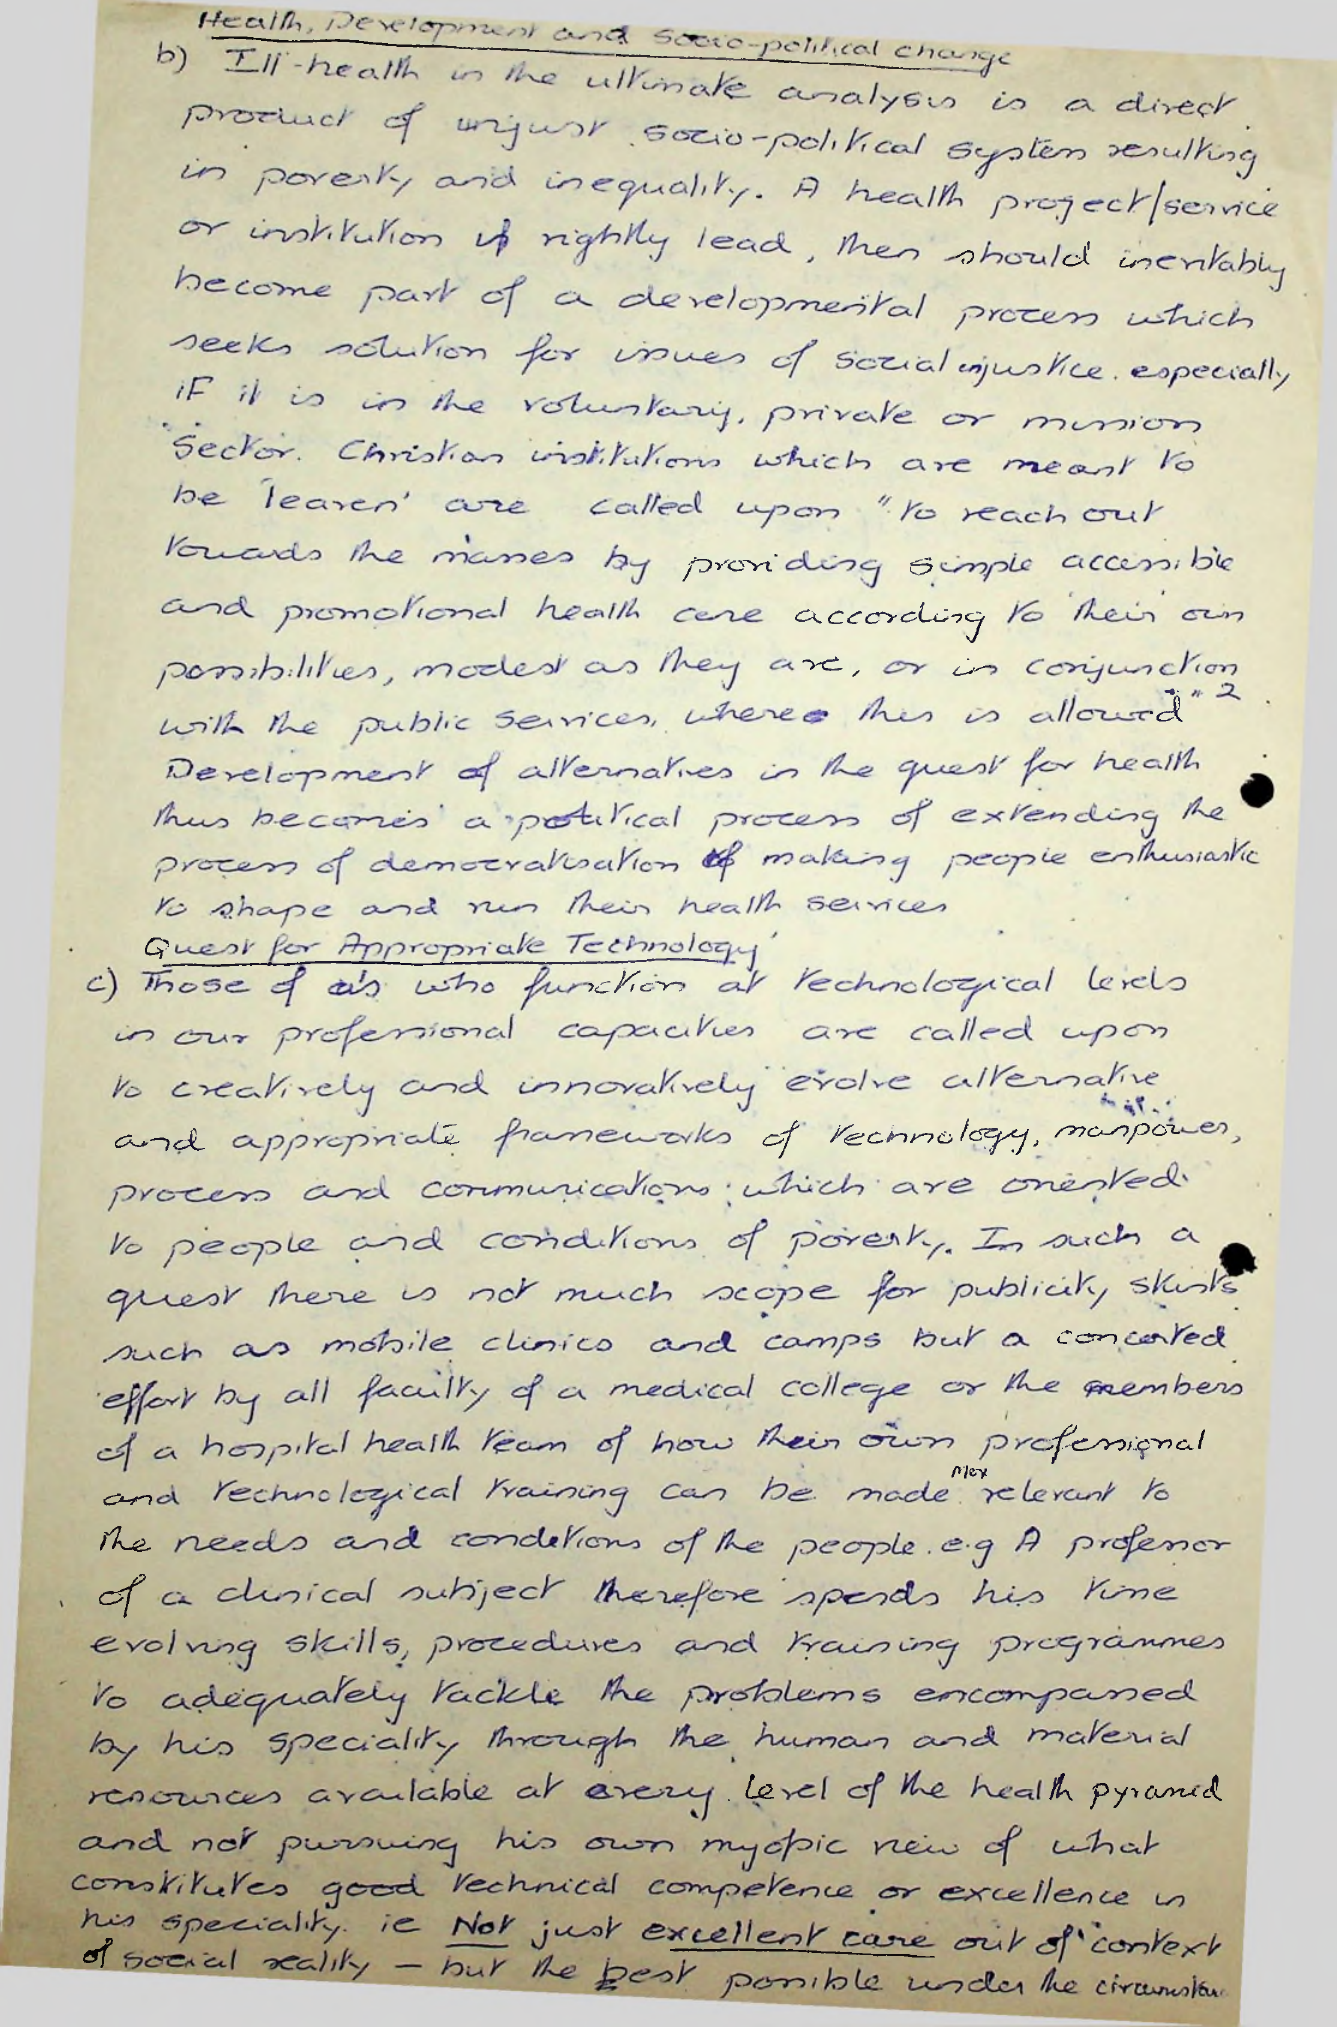 Health, Development and Socio-political change
b) Ill-health in the ultimate analysis is a direct
product of unjust socio-political system resulting
in poverty and inequality. A health project/service
or institution if rightly lead, then should inevitably
become part of a developmental process which
seeks solution for issues of social injustice. especially
if it is in the voluntary, private or mission
sector. Christian institutions which are meant to
be 'leaven' are called upon "to reach out
towards the masses by providing simple accessible
and promotional health care according to their own
possibilities, modest as they are, or in conjunction
with the public services, where this is allowed" 2
Development of alternatives in the quest for health
thus becomes a political process of extending the
process of democratisation of making people enthusiastic
to shape and run their health services
Quest for Appropriate Technology
c) Those of us who function at technological levels
in our professional capacities are called upon
to creatively and innovatively evolve alternative
and appropriate frameworks of technology, manpower,
process and communications which are oriented
to people and conditions of poverty. In such a
quest there is not much scope for publicity skints
such as mobile clinics and camps but a concerted
effort by all faculty of a medical college or the members
of a hospital health team of how their own professional
and technological training can be made more relevant to
the needs and conditions of the people. e.g A professor
of a clinical subject therefore spends his time
evolving skills, procedures and training programmes
to adequately tackle the problems encompassed
by his speciality through the human and material
resources available at every level of the health pyramid
and not pursuing his own myopic view of what
constitutes good technical competence or excellence in
his speciality. ie Not just excellent care out of context
of social reality – but the best possible under the